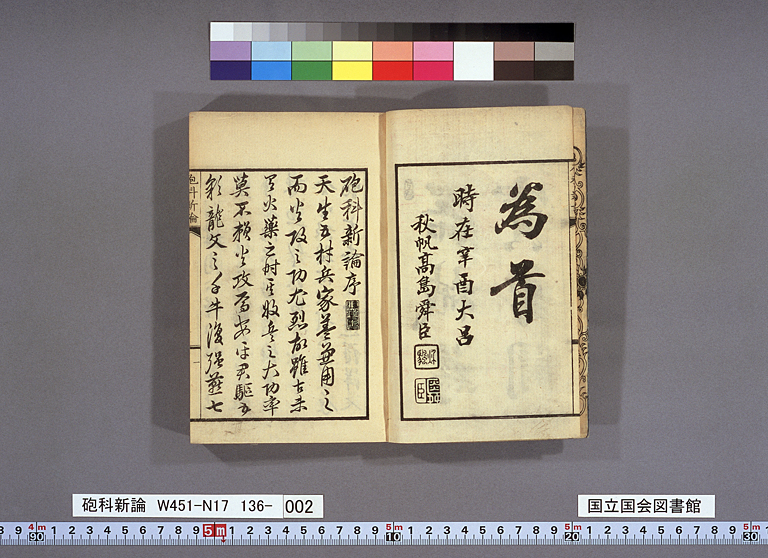 為首
時在辛酉大呂
秋帆高島舜臣
砲科新論序
天生五材兵家蓋兼用之
而火攻之功尤烈故雖古未
有火藥之時其收兵之大功率
莫不頼火攻焉安平君驅五
彩龍文之千牛復強燕七
砲科新論 W451-N17 136- 002
国立国会図書館